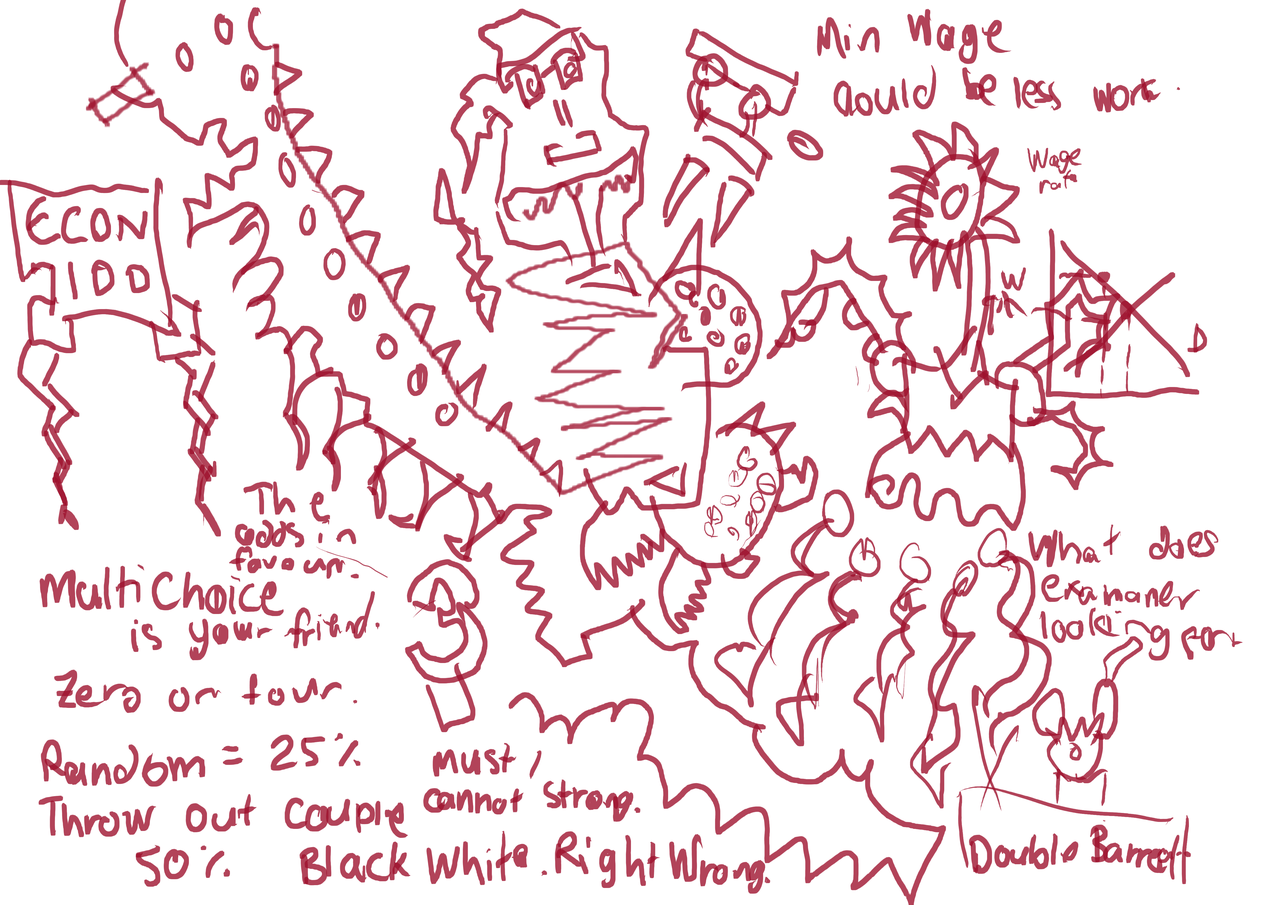 Min Wage
Could be less work.
Wage
rate
ECON
100
W
D
The
odds in
favour.
Multi Choice
is your friend.
Zero or four.
Random = 25%
Throw out couple
50%
must,
cannot strong.
Black White. Right Wrong.
What does
examaner
looking for
Double Barrell